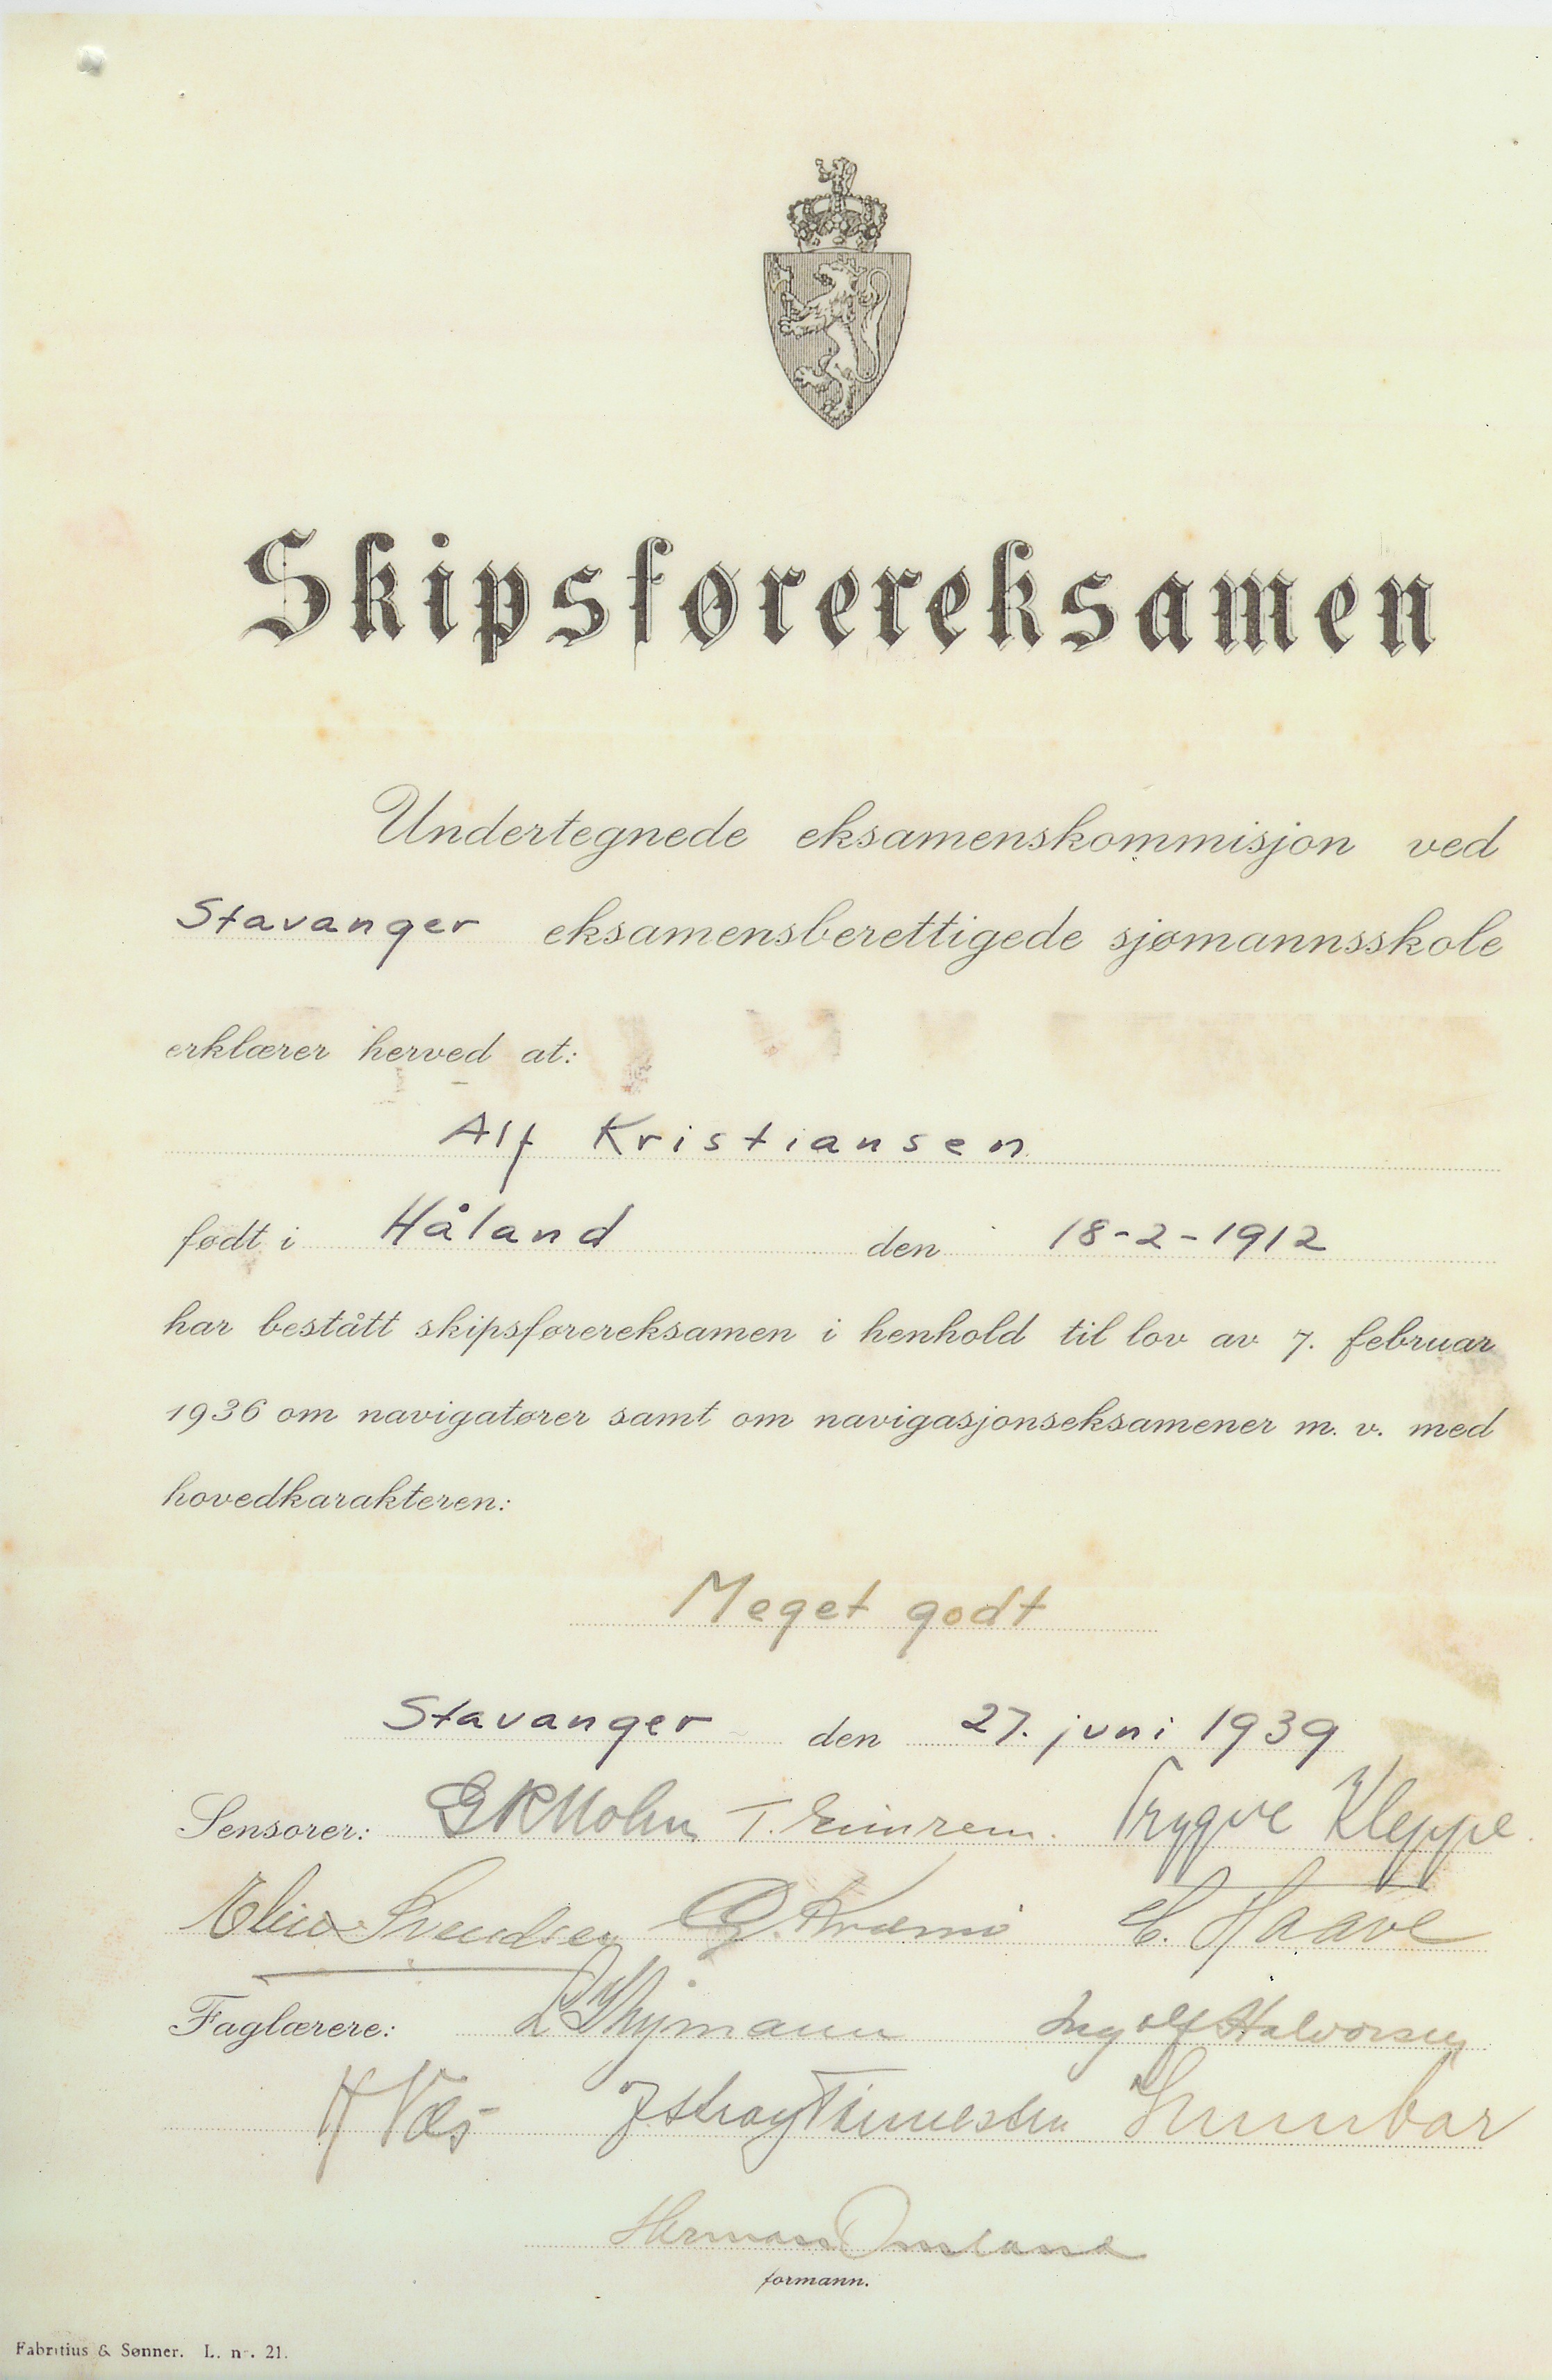 Skipsførereksamen
Undertegnede eksamenskommisjon ved
Stavanger eksamensberettigede sjømannsskole
erklærer herved at:
Alf Kristiansen
født i Håland den 18-2-1912
har bestått skipsførereksamen i henhold til lov av 7. februar
1936 om navigatører samt om navigasjonseksamener m. v. med
hovedkarakteren:
Meget godt
Stavanger den 27. juni 1939
Sensorer: G R Mohn T. Trygve Kleppe
Svendsen C. Haave
Faglærere: Ingolf Halvorsen
H Næs
Herman Omland
formann.
Fabritius & Sønner. L. nr. 21.